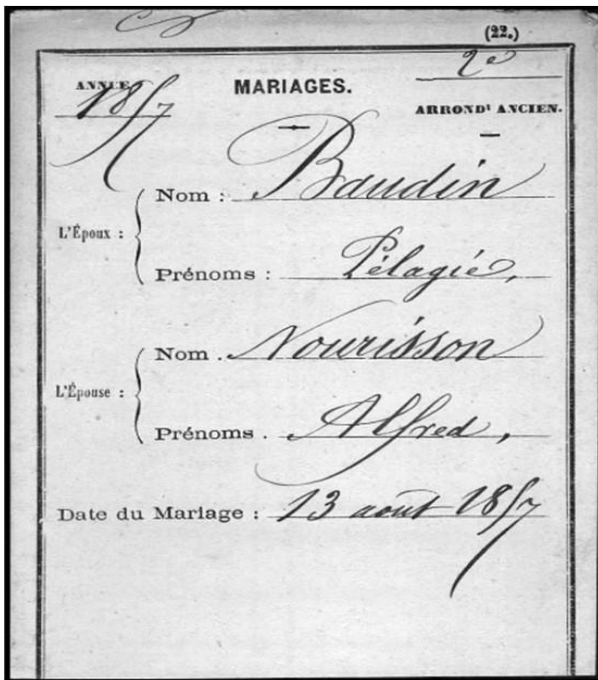 (22.)
ANNÉE
1857
MARIAGES.
2e
ARRONDt ANCIEN.
L'Époux :
Nom : Baudin
Prénoms : Pélagie,
L'Épouse :
Nom . Nourisson
Prénoms . Alfred,
Date du Mariage : 13 août 1857